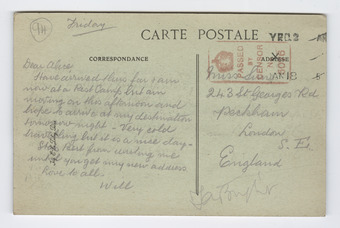 Friday
CARTE POSTALE
CORRESPONDANCE
ADRESSE
Dear Alice
Have arrived thus far & am
now at a Rest Camp but am
moving on this afternoon and
hope to arrive at my destination
tomorrow night - Very cold
travelling but it is a nice day -
from writing me
until you get my new address
Love to all.
Will
PASSED
BY
CENSOR
Miss
243 St Georges Rd
Peckham
London
S. E.
England